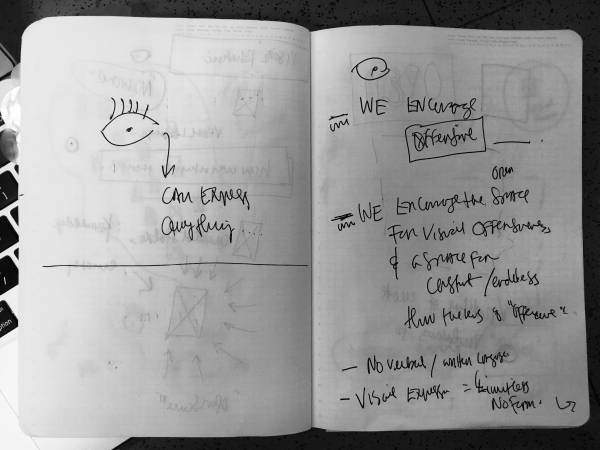 CAN EXPRESS
anything ....
WE Encourage
Offensive
open
WE Encourage the Source
For Visual Offensiveness
& a Source for
Constant / endless
thru the lens of "offensive".
- No verbal / written
- Visual Expression = Limitless
No Form.